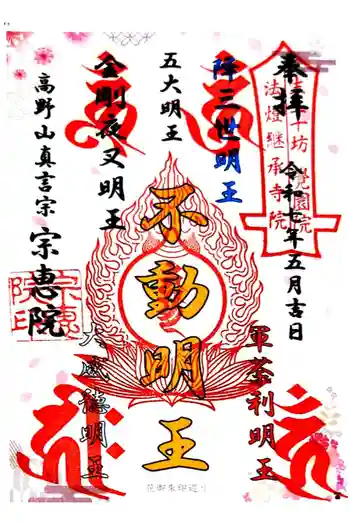 奉拝
令和七年五月吉日
十坊
覚園院
法燈継承寺院
降三世明王
軍荼利明王
五大明王
不動明王
金剛夜叉明王
大威徳明王
高野山真言宗
宗恵院
宗恵院印
花御朱印巡り